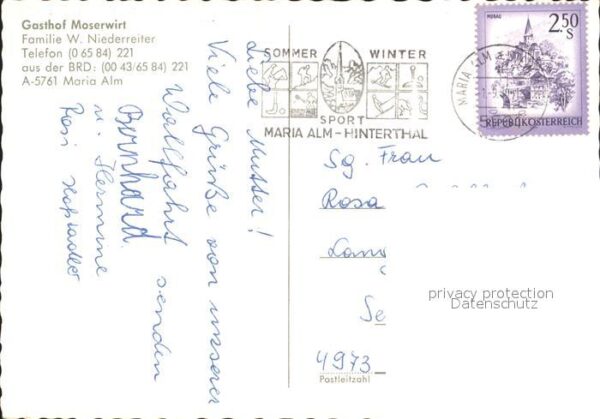 Gasthof Moserwirt
Familie W. Niederreiter
Telefon (0 65 84) 221
aus der BRD: (00 43/65 84) 221
A-5761 Maria Alm
SOMMER WINTER
SPORT
MARIA ALM - HINTERTHAL
MARIA ALM
MURAU
2.50
S
REPUBLIK ÖSTERREICH
Liebe Mutter!
Viele Grüße von unserer
Wallfahrt senden
Bernhard
u. Hermine
Rosi
Sg. Frau
Rosa
Se
4973
Postleitzahl
privacy protection
Datenschutz